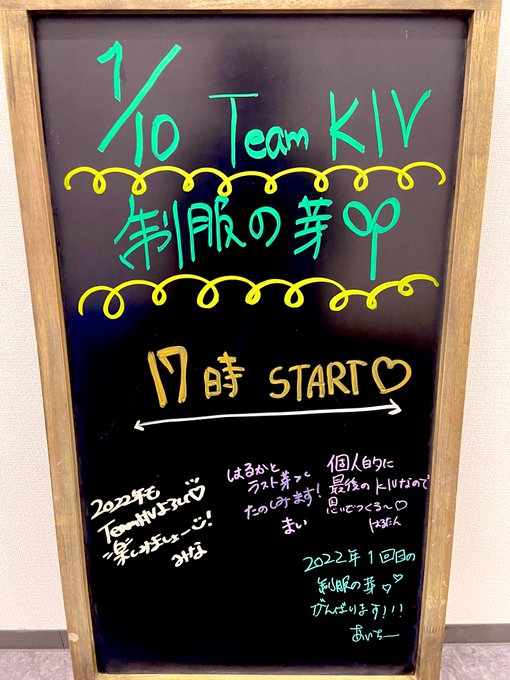 1/10 Team KIV
制服の芽
17時 START♡
2022年も
TeamHVよろしく♡
楽しみましょー!
みな
はるかと
ラスト芽って
たのしみます!
まい
個人的に
最後のKIVなので
思いでつくる〜♡
はるたん
2022年1回目の
制服の芽♡♡
がんばります!!!
あいちー